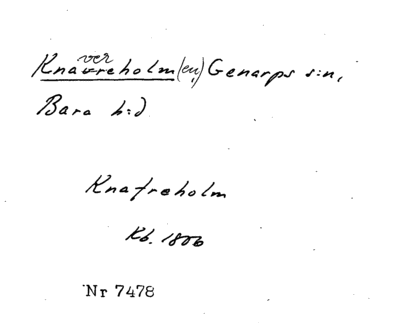 Knavreholm(en) Genarps s:n,
ver
Bara h:d
Knafreholm
Kb. 1806
Nr 7478